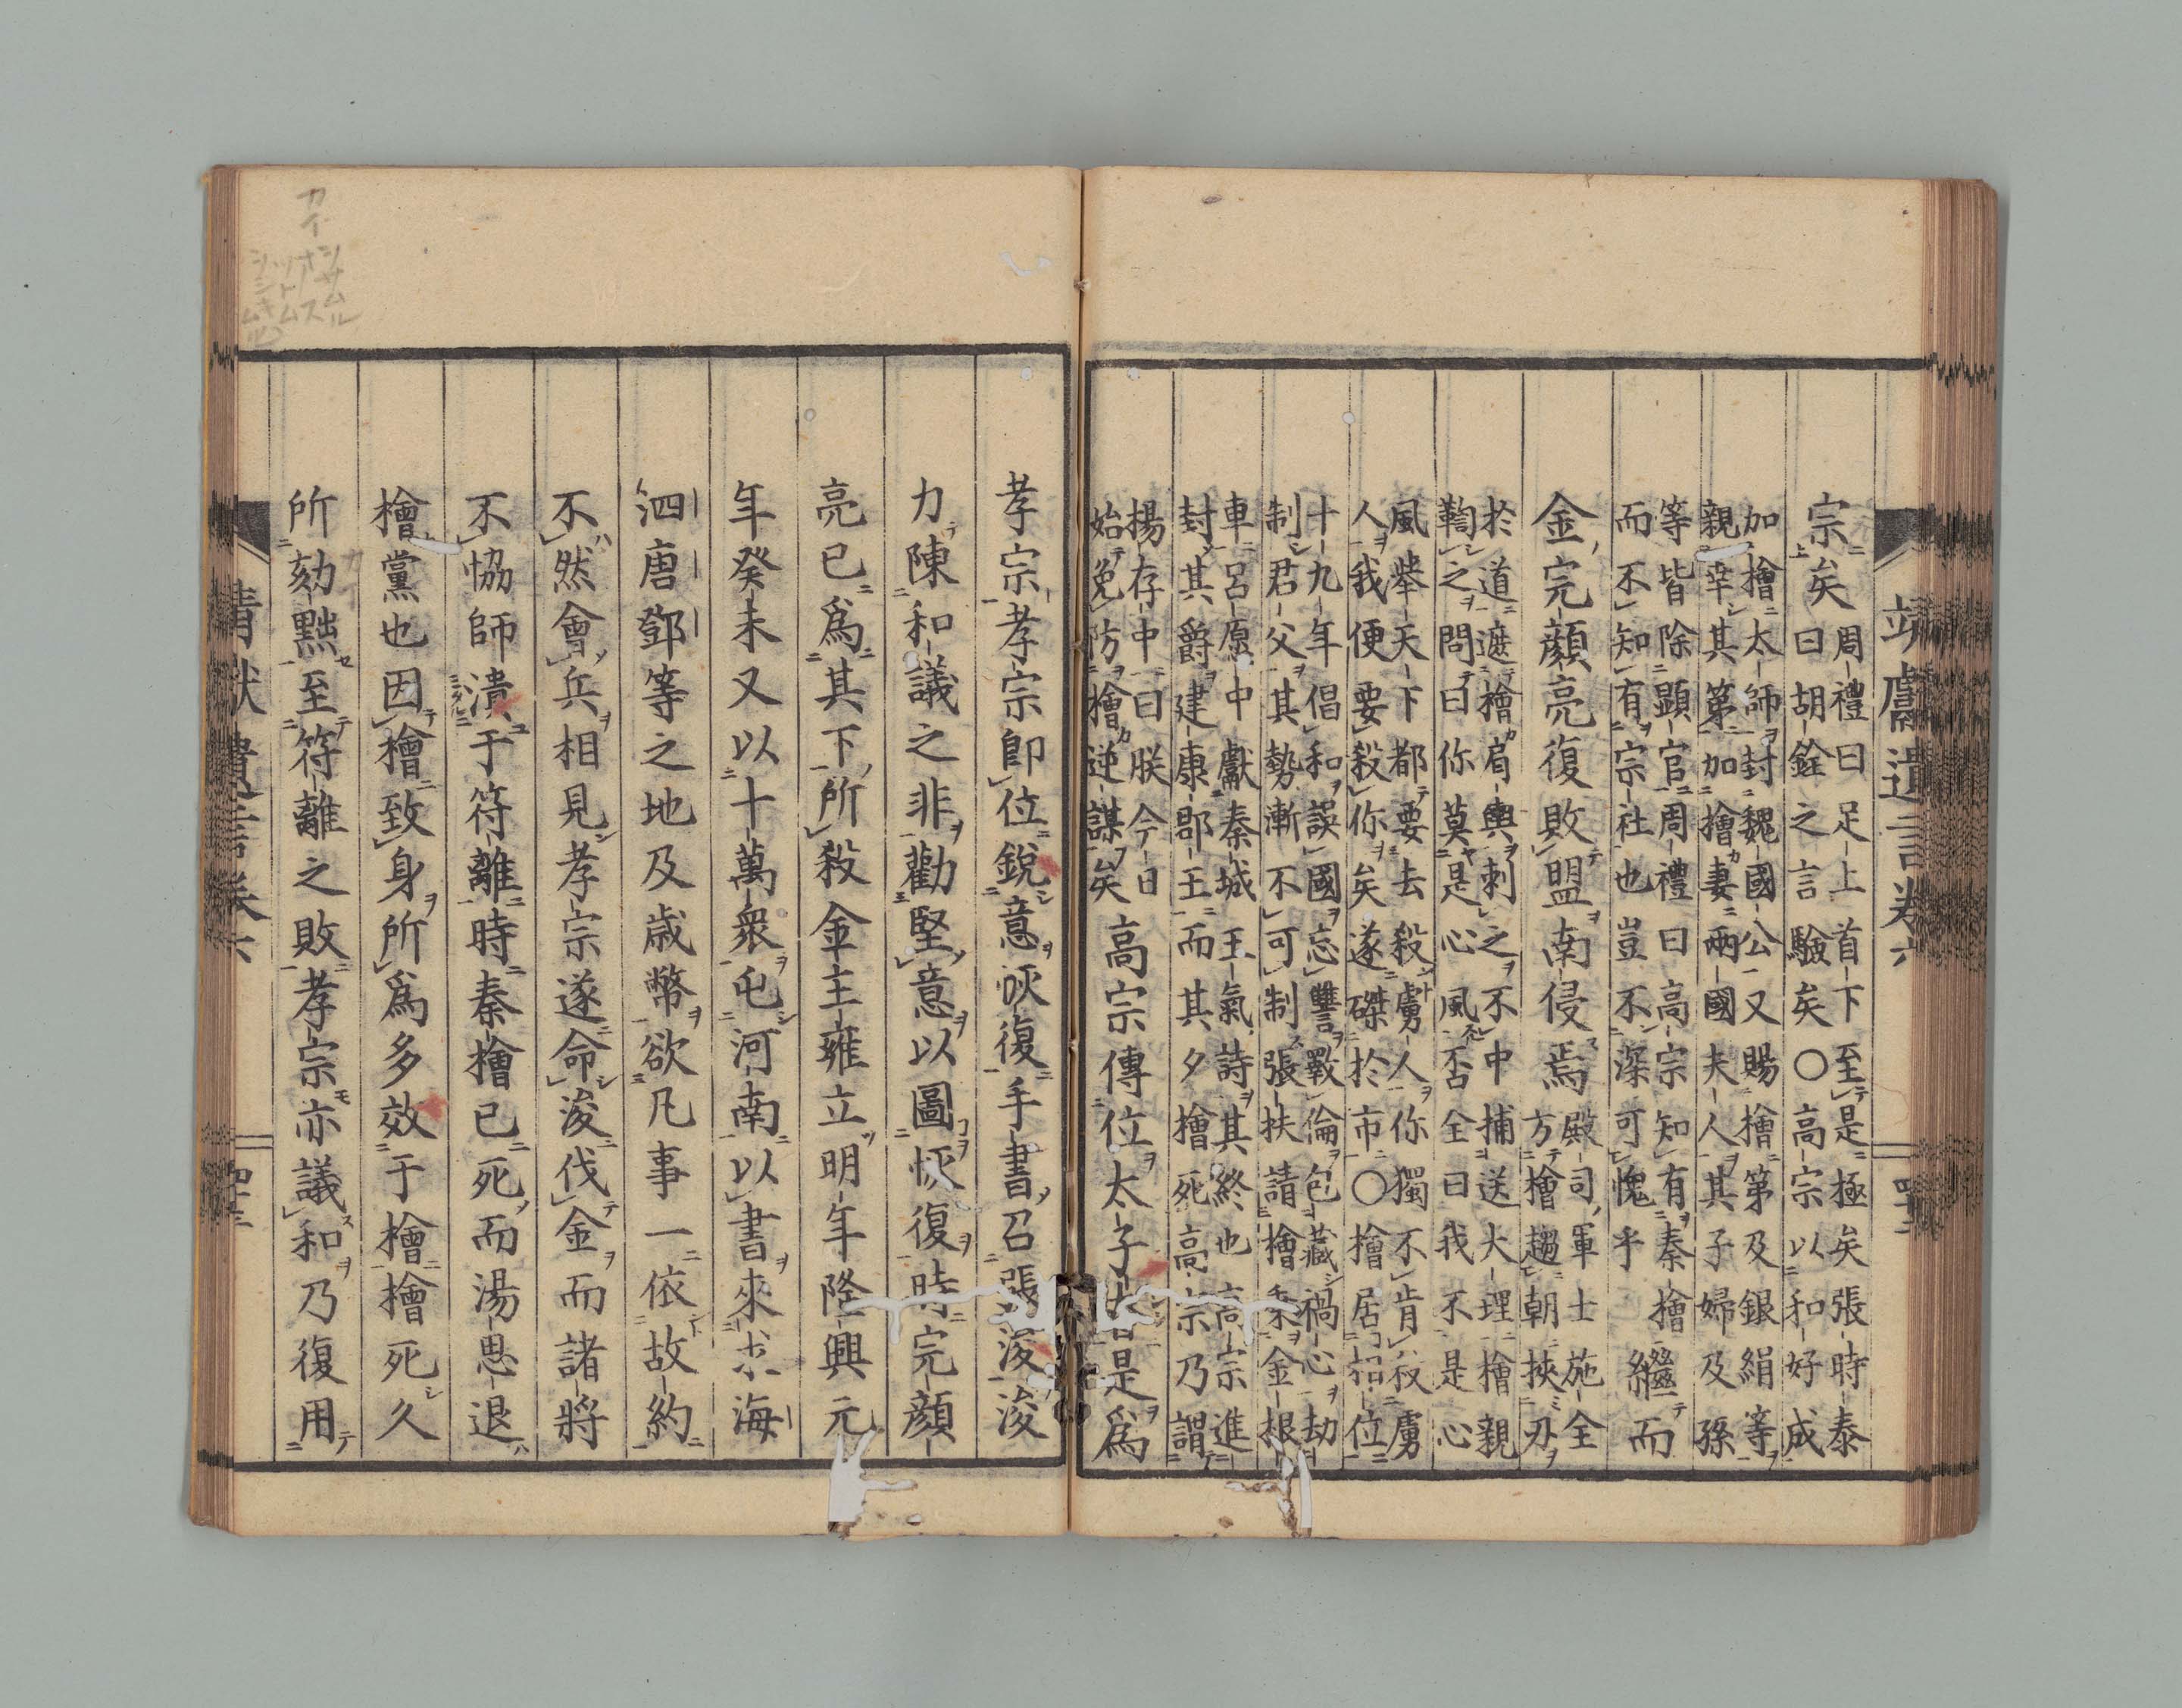 靖獻遺言卷六
宗矣周禮曰足上首下至是極矣張時泰
曰胡銓之言驗矣○高宗以和好成
加檜太師封魏國公又賜檜第及銀絹等
親幸其第加檜妻兩國夫人其子婦及孫
等皆除顯官周禮曰高宗知有秦檜
而不知有宗社也豈不深可愧乎繼而
金完顏亮復敗盟南侵焉殿司軍士施全
方檜趨朝挾刃
於道遮檜肩輿刺之不中捕送大理檜親
鞫之問曰你莫是心風否全曰我不是心
風舉天下都要去殺虜人你獨不肯殺虜
人我便要殺你矣遂磔於市○檜居相位
十九年倡和誤國忘讐斁倫包藏禍心劫
制君父其勢漸不可制張扶請檜乘金根
車呂愿中獻秦城王氣詩其終也高宗進
封其爵建康郡王而其夕檜死高宗乃謂
楊存中曰朕今日
始免防檜逆謀矣高宗傳位太子是爲
孝宗孝宗卽位銳意恢復手書召張浚浚
力陳和議之非勸堅意以圖恢復時完顏
亮已爲其下所殺金主雍立明年隆興元
年癸未又以十萬衆屯河南以書來求海
泗唐鄧等之地及歲幣欲凡事一依故約
不然會兵相見孝宗遂命浚伐金而諸將
不恊師潰于符離時秦檜已死而湯思退
檜黨也因檜致身所爲多效于檜檜死久
所劾黜至符離之敗孝宗亦議和乃復用